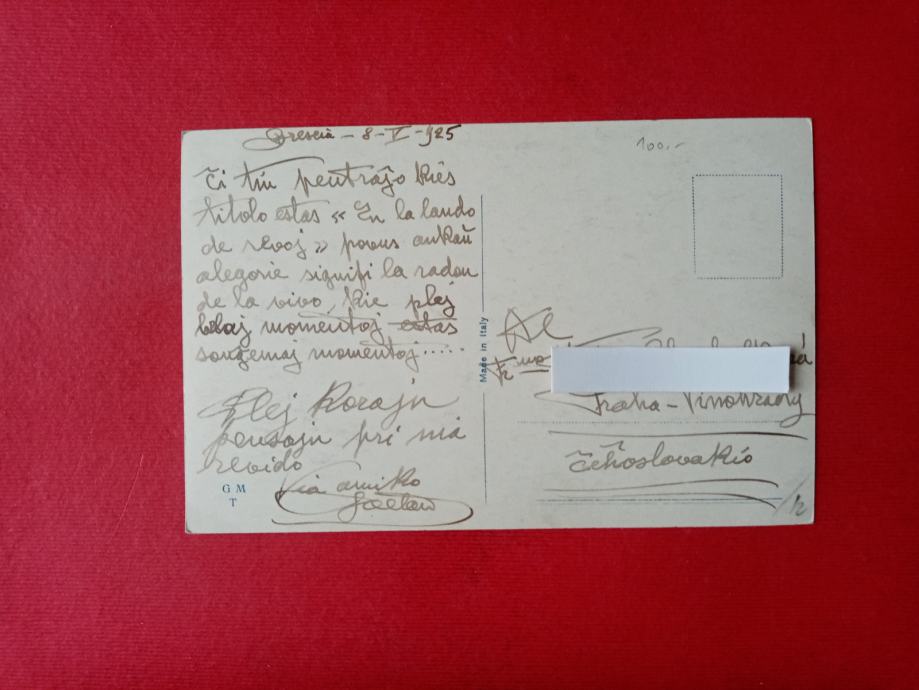 Brescia - 8-V-925
100.-
Ĉi tiu pentraĵo kies
titolo estas « En la lando
de revoj » povus ankaŭ
alegorie signifi la
de la vivo, kie plej
belaj momentoj estas
sonĝemaj momentoj.....
Plej korajn
pensojn pri nia
revido
Via amiko
G M
T
Made in Italy
Al
F.ino
Praha - Vinohrady
Ĉeĥoslovakio